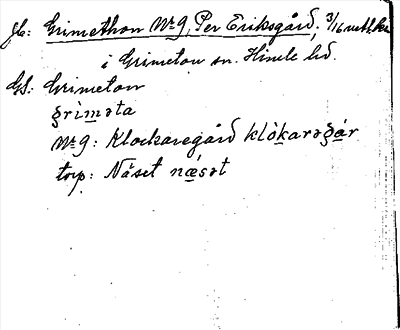 Jb: Grimethon No 9, Per Eriksgård, 3/16 mtl. kr
i Grimeton sn. Himle hd.
GS: Grimeton
gri̱mǝta
No 9: Klockaregård klòkarǝgár
torp: Näset næ̀sǝt